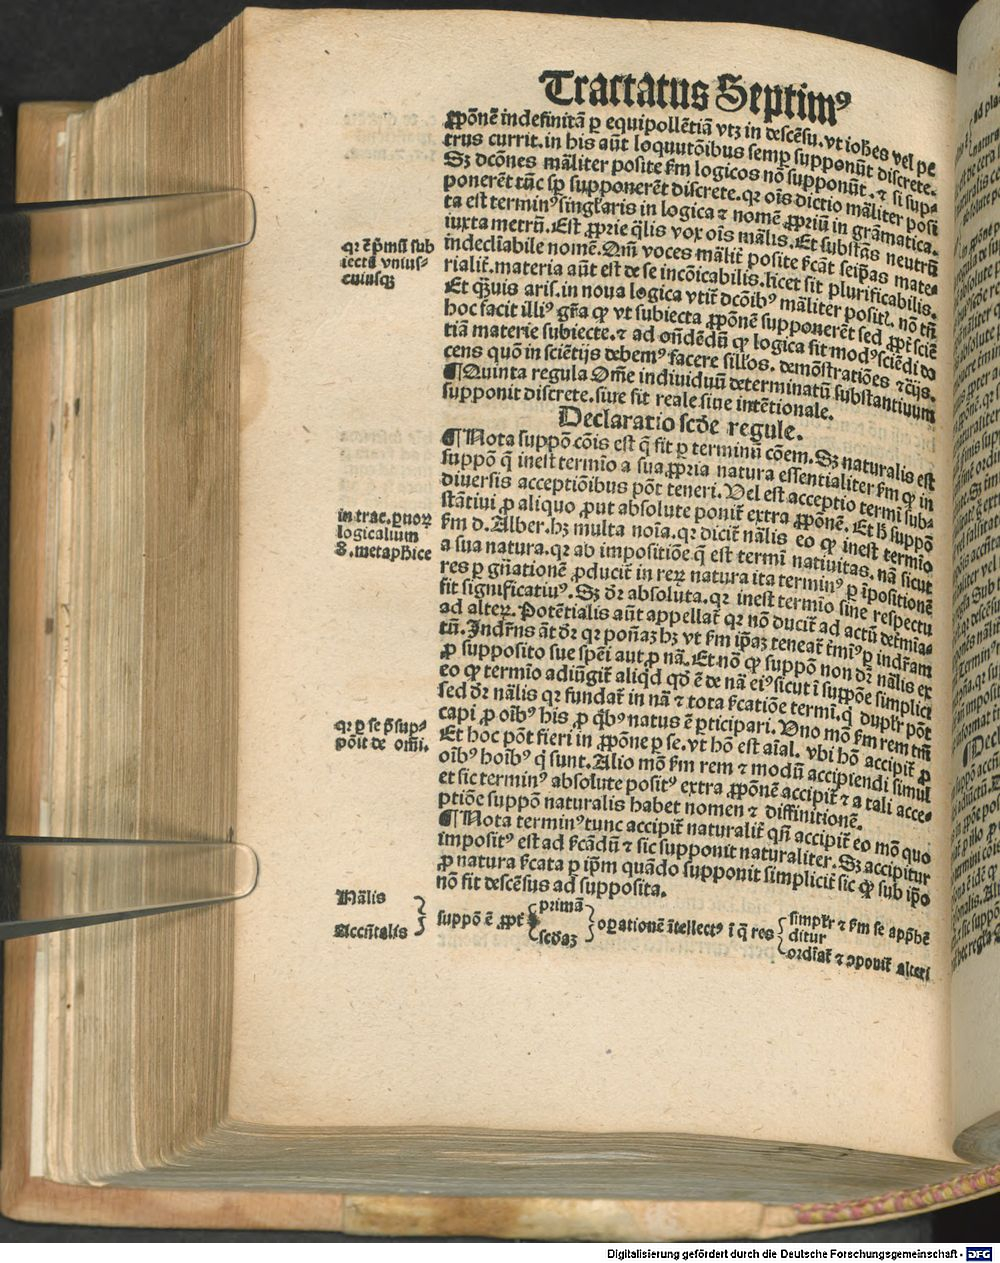 Tractatus Septimꝰ
ꝓpōnē indefinitā ꝑ equipollētiā vtꝫ in descēsu. vt iohēs vel pe
trus currit. in his aūt loquutōibus semꝑ supponūt discrete.
Sꝫ dcōnes māliter posite ẜm logicos nō supponūt. ⁊ si sup⸗
ponerēt tūc sꝑ supponerēt discrete. qꝛ oīs dictio māliter posi
ta est terminꝰ singl̄aris in logica ⁊ nomē ꝓpriū in grāmatica.
iuxta metrū. Est ꝓprie q̄lis vox oīs mālis. Et subst̄as neutrū
indeclīabile nomē. Om̄ voces mālit̄ posite ẜcāt seip̄as mate⸗
rialit̄. materia aūt est de se incōicabilis. licet sit plurificabilis.
Et q̄ꝫuis aris. in noua logica vtit̄ dcōibꝰ māliter positꝭ. nō tn̄
hoc facit illiꝰ gr̄a ꝙ vt subiecta ꝓpōnē supponerēt sed ꝓpt̄ sciē
tiā materie subiecte. ⁊ ad on̄dēdū ꝙ logica sit modꝰ sciēdi do
cens quō in sciētijs debemꝰ facere sillōs. demōstratiōes ⁊c̄ijs.
¶ Quinta regula Om̄e indiuiduū determinatū substantiuum
supponit discrete. siue sit reale siue intētionale.
Declaratio scd̄e regule.
¶ Nota suppō cōis est q̄ fit ꝑ terminū cōem. Sꝫ naturalis est
suppō q̄ inest termīo a sua ꝓpria natura essentialiter ẜm ꝙ in
diuersis acceptiōibus pōt teneri. Uel est acceptio termī sub⸗
stātiui ꝓ aliquo ꝓut absolute ponit̄ extra ꝓpōnē. Et h̄ suppō
ẜm d. Alber. hꝫ multa noīa. qꝛ dicit̄ nālis eo ꝙ inest termīo
a sua natura. qꝛ ab impositiōe q̄ est termī natiuitas. nā sicut
res ꝑ gn̄ationē ꝓducit̄ in reꝝ natura ita terminꝰ ꝑ īpositionē
fit significatiuꝰ. Sꝫ dr̄ absoluta. qꝛ inest termīo sine respectu
ad alteꝝ. Potētialis aūt appellat̄ qꝛ nō ducit̄ ad actū det̄mīa⸗
tū. Indr̄ns āt dr̄ qꝛ poñaꝫ hꝫ vt ẜm ip̄aꝫ teneat̄ t̄mīꝰ ꝑ indr̄am
ꝓ supposito sue spēi aut ꝓ nā. Et nō ꝙ suppō non dr̄ nālis ex
eo ꝙ termīo adiūgit̄ aliqd̄ qd̄ ē de nā eiꝰ sicut ī suppōe simplici
sed dr̄ nālis qꝛ fundat̄ in nā ⁊ tota ẜcatiōe termī. q̄ duplr̄ pōt
capi ꝓ oībꝰ his ꝓ q̄bꝰ natus ē ꝑticipari. Uno mō ẜm rem tm̄
Et hoc pōt fieri in ꝓpōne ꝑ se. vt hō est aīal. vbi hō accipit̄ ꝓ
oībꝰ hoībꝰ q̄ sunt. Alio mō ẜm rem ⁊ modū accipiendi simul
et sic terminꝰ absolute positꝰ extra ꝓpōnē accipit̄ ⁊ a tali acce⸗
ptiōe suppō naturalis habet nomen ⁊ diffinitionē.
¶ Nota terminꝰ tunc accipit̄ naturalit̄ qn̄ accipit̄ eo mō quo
impositꝰ est ad ẜcādū ⁊ sic supponit naturaliter. Sꝫ accipitur
ꝓ natura ẜcata ꝑ ip̄m quādo supponit simplicit̄ sic ꝙ sub ip̄o
nō fit descēsus ad supposita.
Nālis
Accn̄talis
suppō ē ꝓpt̄
primā
scd̄aꝫ
oꝑationē ītellectꝰ ī q̄ res
simplr̄ ⁊ ẜm se apphē
ditur
ordīat̄ ⁊ ꝯponit̄ alteri
qꝛ ē pͥmū sub
iectū vnius⸗
cuiusqꝫ
in trac. ꝑuoꝝ
logicalium
8. metaphice
qꝛ ꝑ se p̄sup⸗
pōit de om̄i.
Digitalisierung gefördert durch die Deutsche Forschungsgemeinschaft - DFG